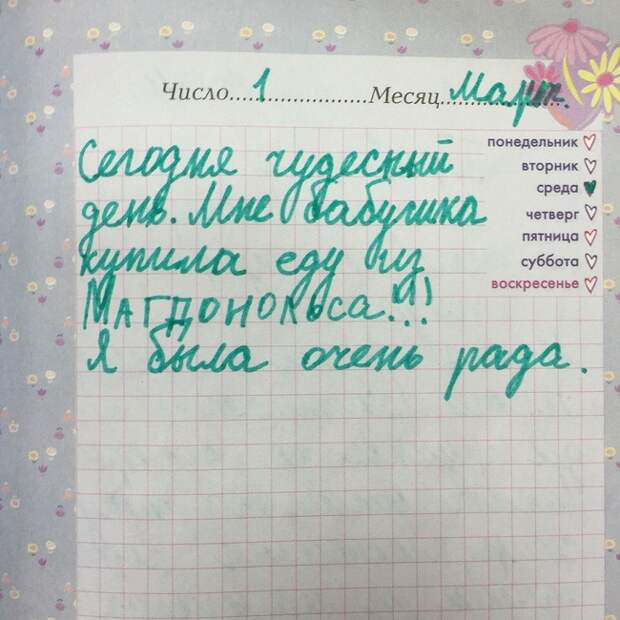 Число....1....................Месяц....Март.
понедельник
вторник
среда
четверг
пятница
суббота
воскресенье
Сегодня чудесный
день. Мне бабушка
купила еду из
Магдонольса...!!!
Я была очень рада.